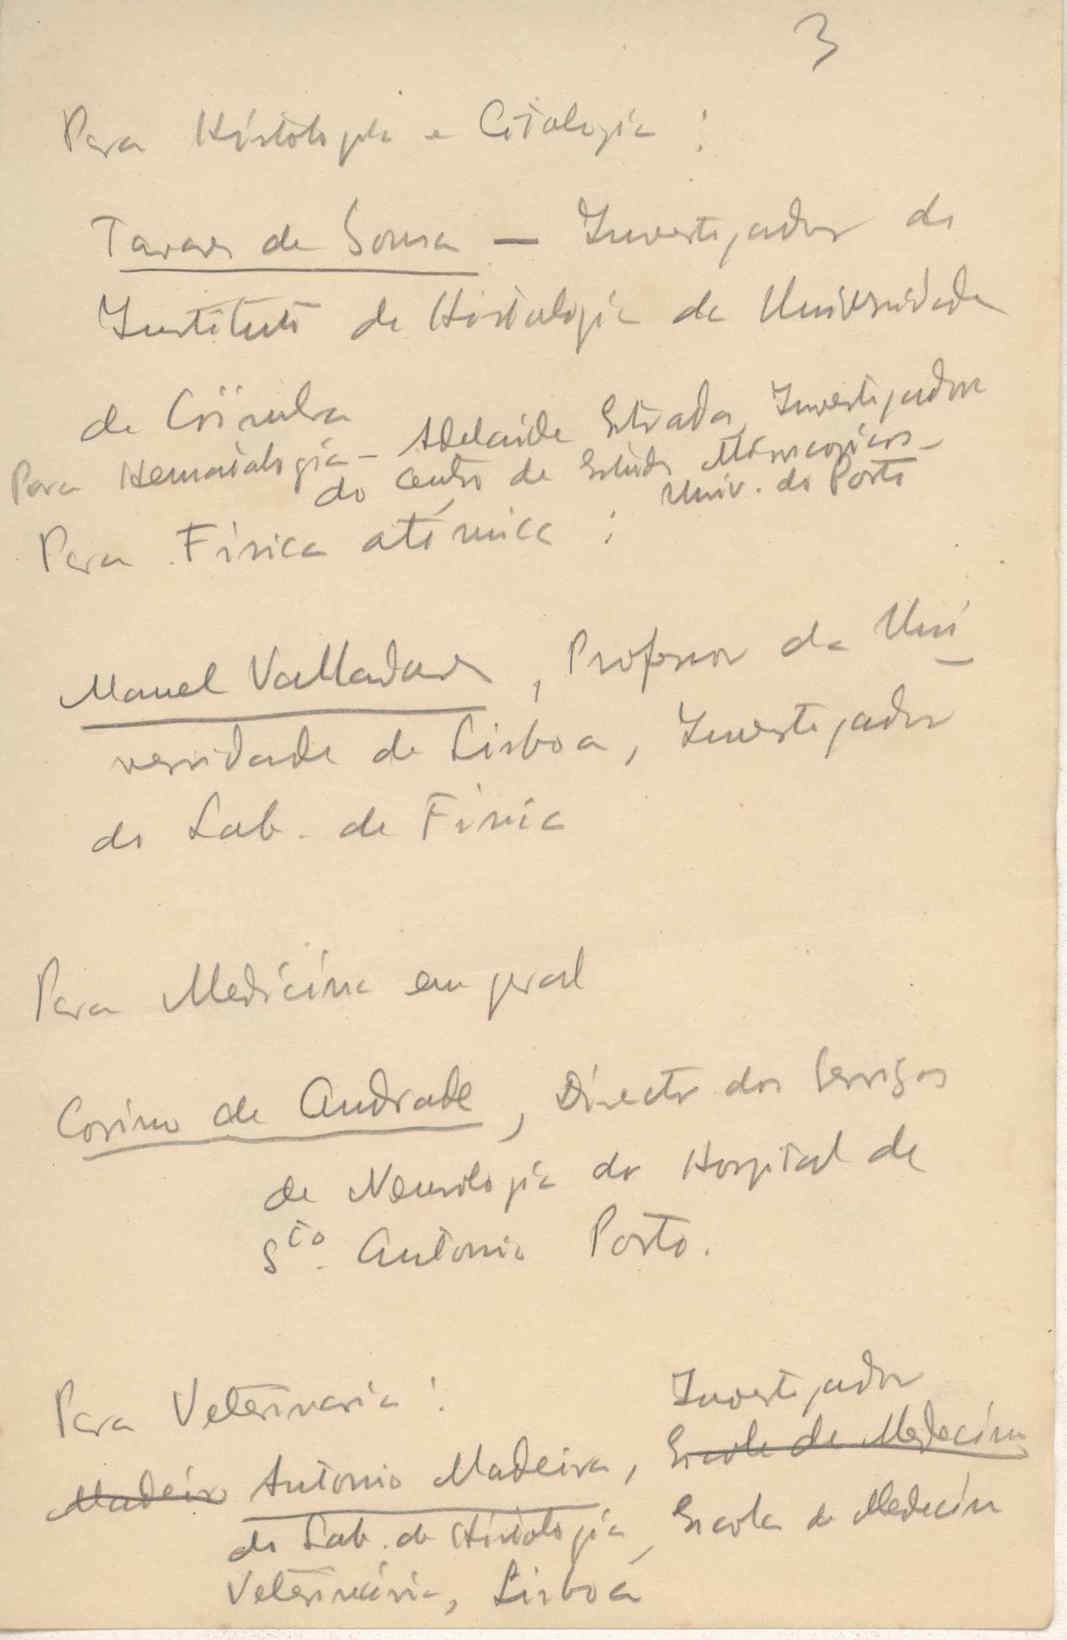 3
Para Histologia e Citologia :
Tavares de Sousa — Investigador do
Instituto de Histologia da Universidade
de Coimbra
Para Hematologia – Adelaide Estrada, Investigadora
do Centro de Estudos Microscópicos –
Univ. do Porto
Para Física atómica :
Manuel Valladares, Professor da Uni
versidade de Lisboa, Investigador
do Lab. de Física
Para Medicina em geral
Corino de Andrade, Director dos Serviços
de Neurologia do Hospital de
Sto. Antonio Porto.
Para Veterinaria :
Investigador
Madeir Antonio Madeira, Escola de Medecina
do Lab. de Histologia, Escola de Medecina
Veterinária, Lisboa